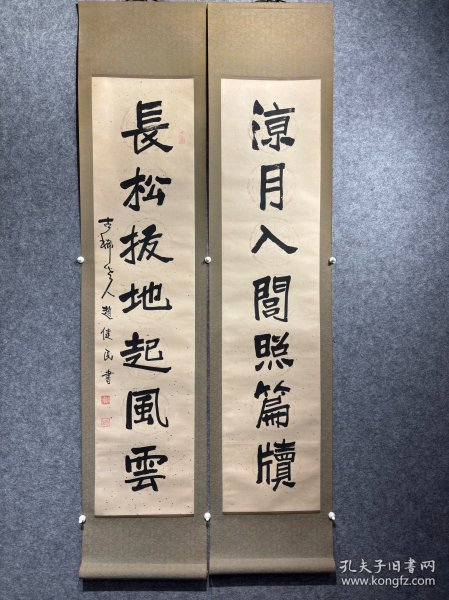 涼月入閣照篇牘
長松拔地起風雲
趙健民書
孔夫子旧书网
www.kongfz.com